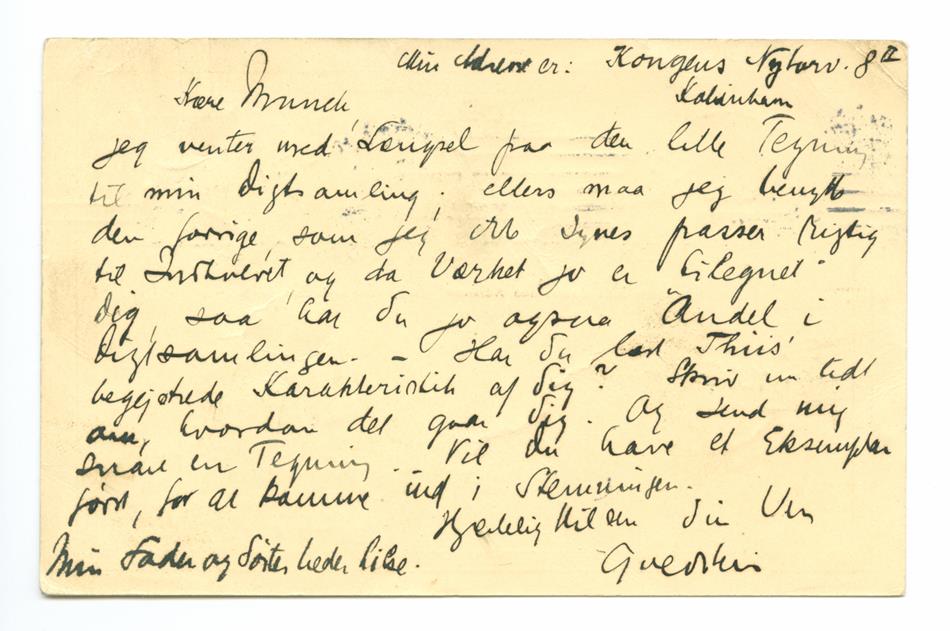 Min Adresse er: Kongens Nytorv. 8 II
København
Kære Munch,
jeg venter med Længsel paa den lille Tegning
til min Digtsamling, ellers maa jeg benytte
den forrige, som jeg ikke synes passer rigtig
til Indholdet, og da Værket jo er "tilegnet"
Dig, saa har du jo ogsaa Andel i
Digtsamlingen. – Har du læst Thiis'
begejstrede Karakteristik af Dig? Skriv en lidt
om, hvordan det gaar Dig. Og send mig
snart en Tegning. Vil du have et Eksemplar
først, for at komme ind i Stemningen.
Hjertelig Hilsen din Ven
Min Fader og Søster beder hilse.